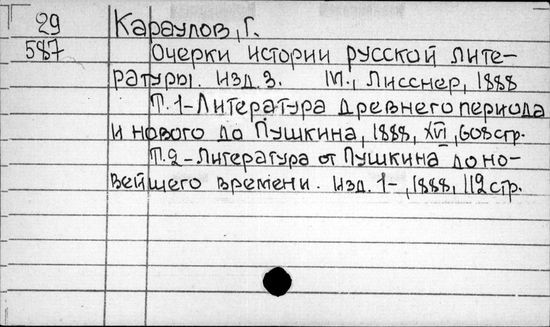 29 Караулов, Г.
587 Очерки истории русской лите-
ратуры. Изд. 3. М., Лисснер, 1888
Т. 1 - Литература древнего периода
и нового до Пушкина, 1888, XVI, 608 стр.
Т. 2 - Литература от Пушкина до но-
вейшего времени. Изд. 1-, 1888, 112 стр.